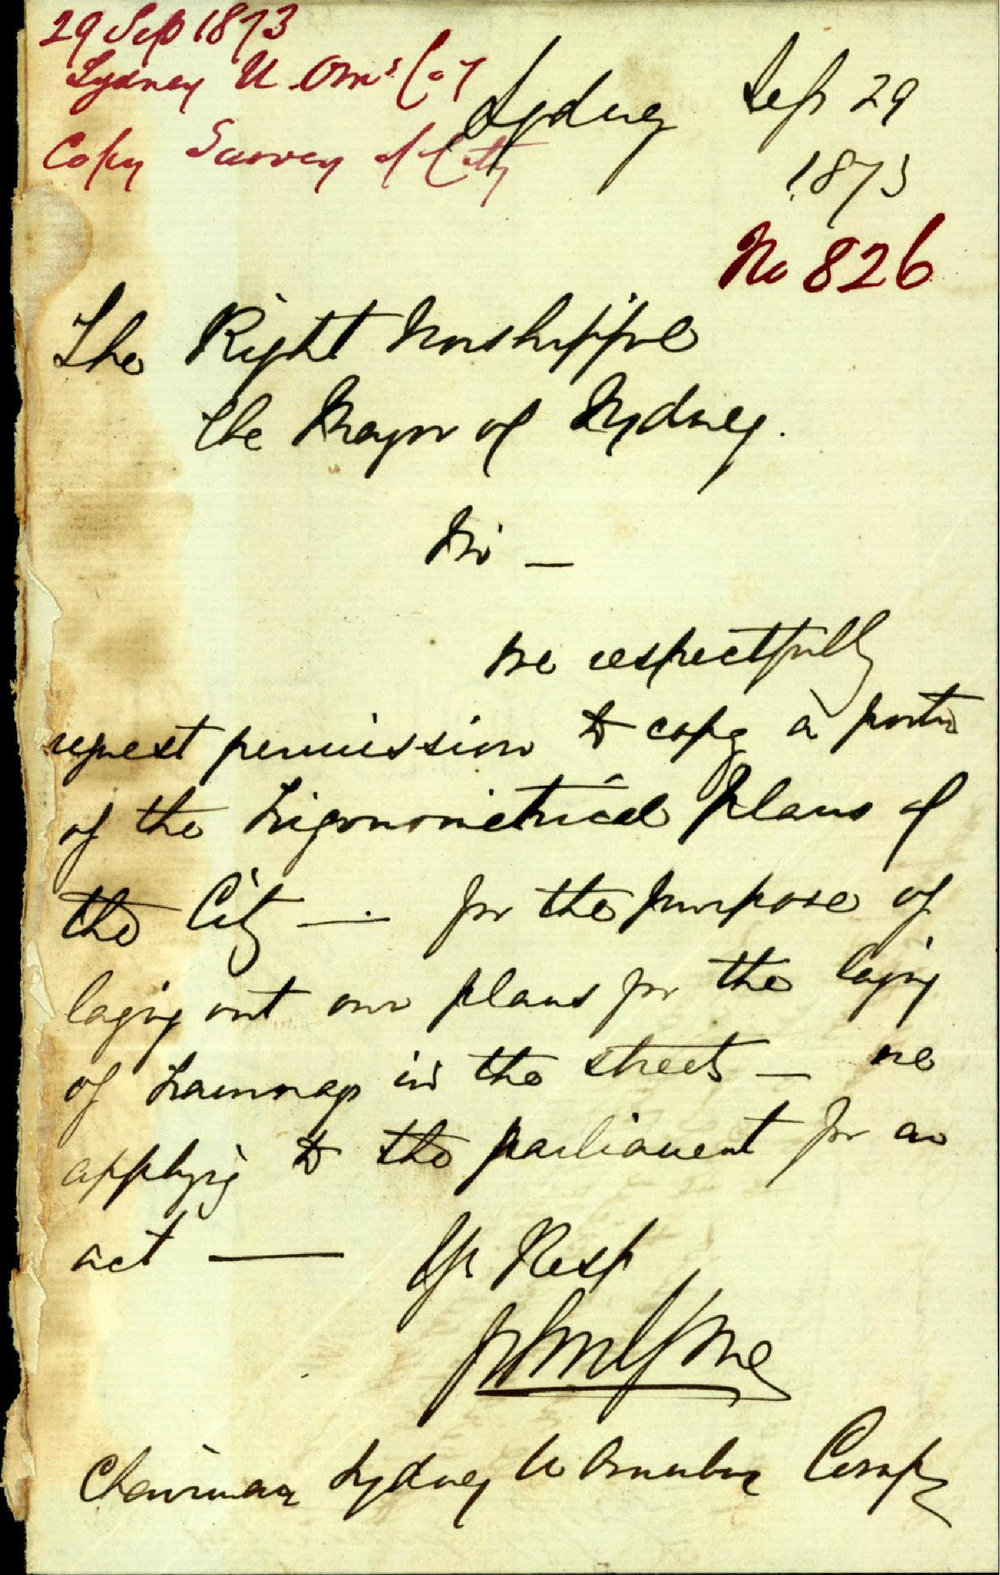 29 Sep 1873
Sydney U. Omˢ Coy
Copy Survey of City
Sydney Sep 29
1873
No 826
The Right Worshipful
the Mayor of Sydney.
Sir —
We respectfully
request permission to copy a portn
of the Trigonometrical Plans of
the City — for the purpose of
laying out our plans for the laying
of tramways in the streets — we
applying to the parliament for an
act — Yr Resp
Chairman Sydney U Omnibus Compy